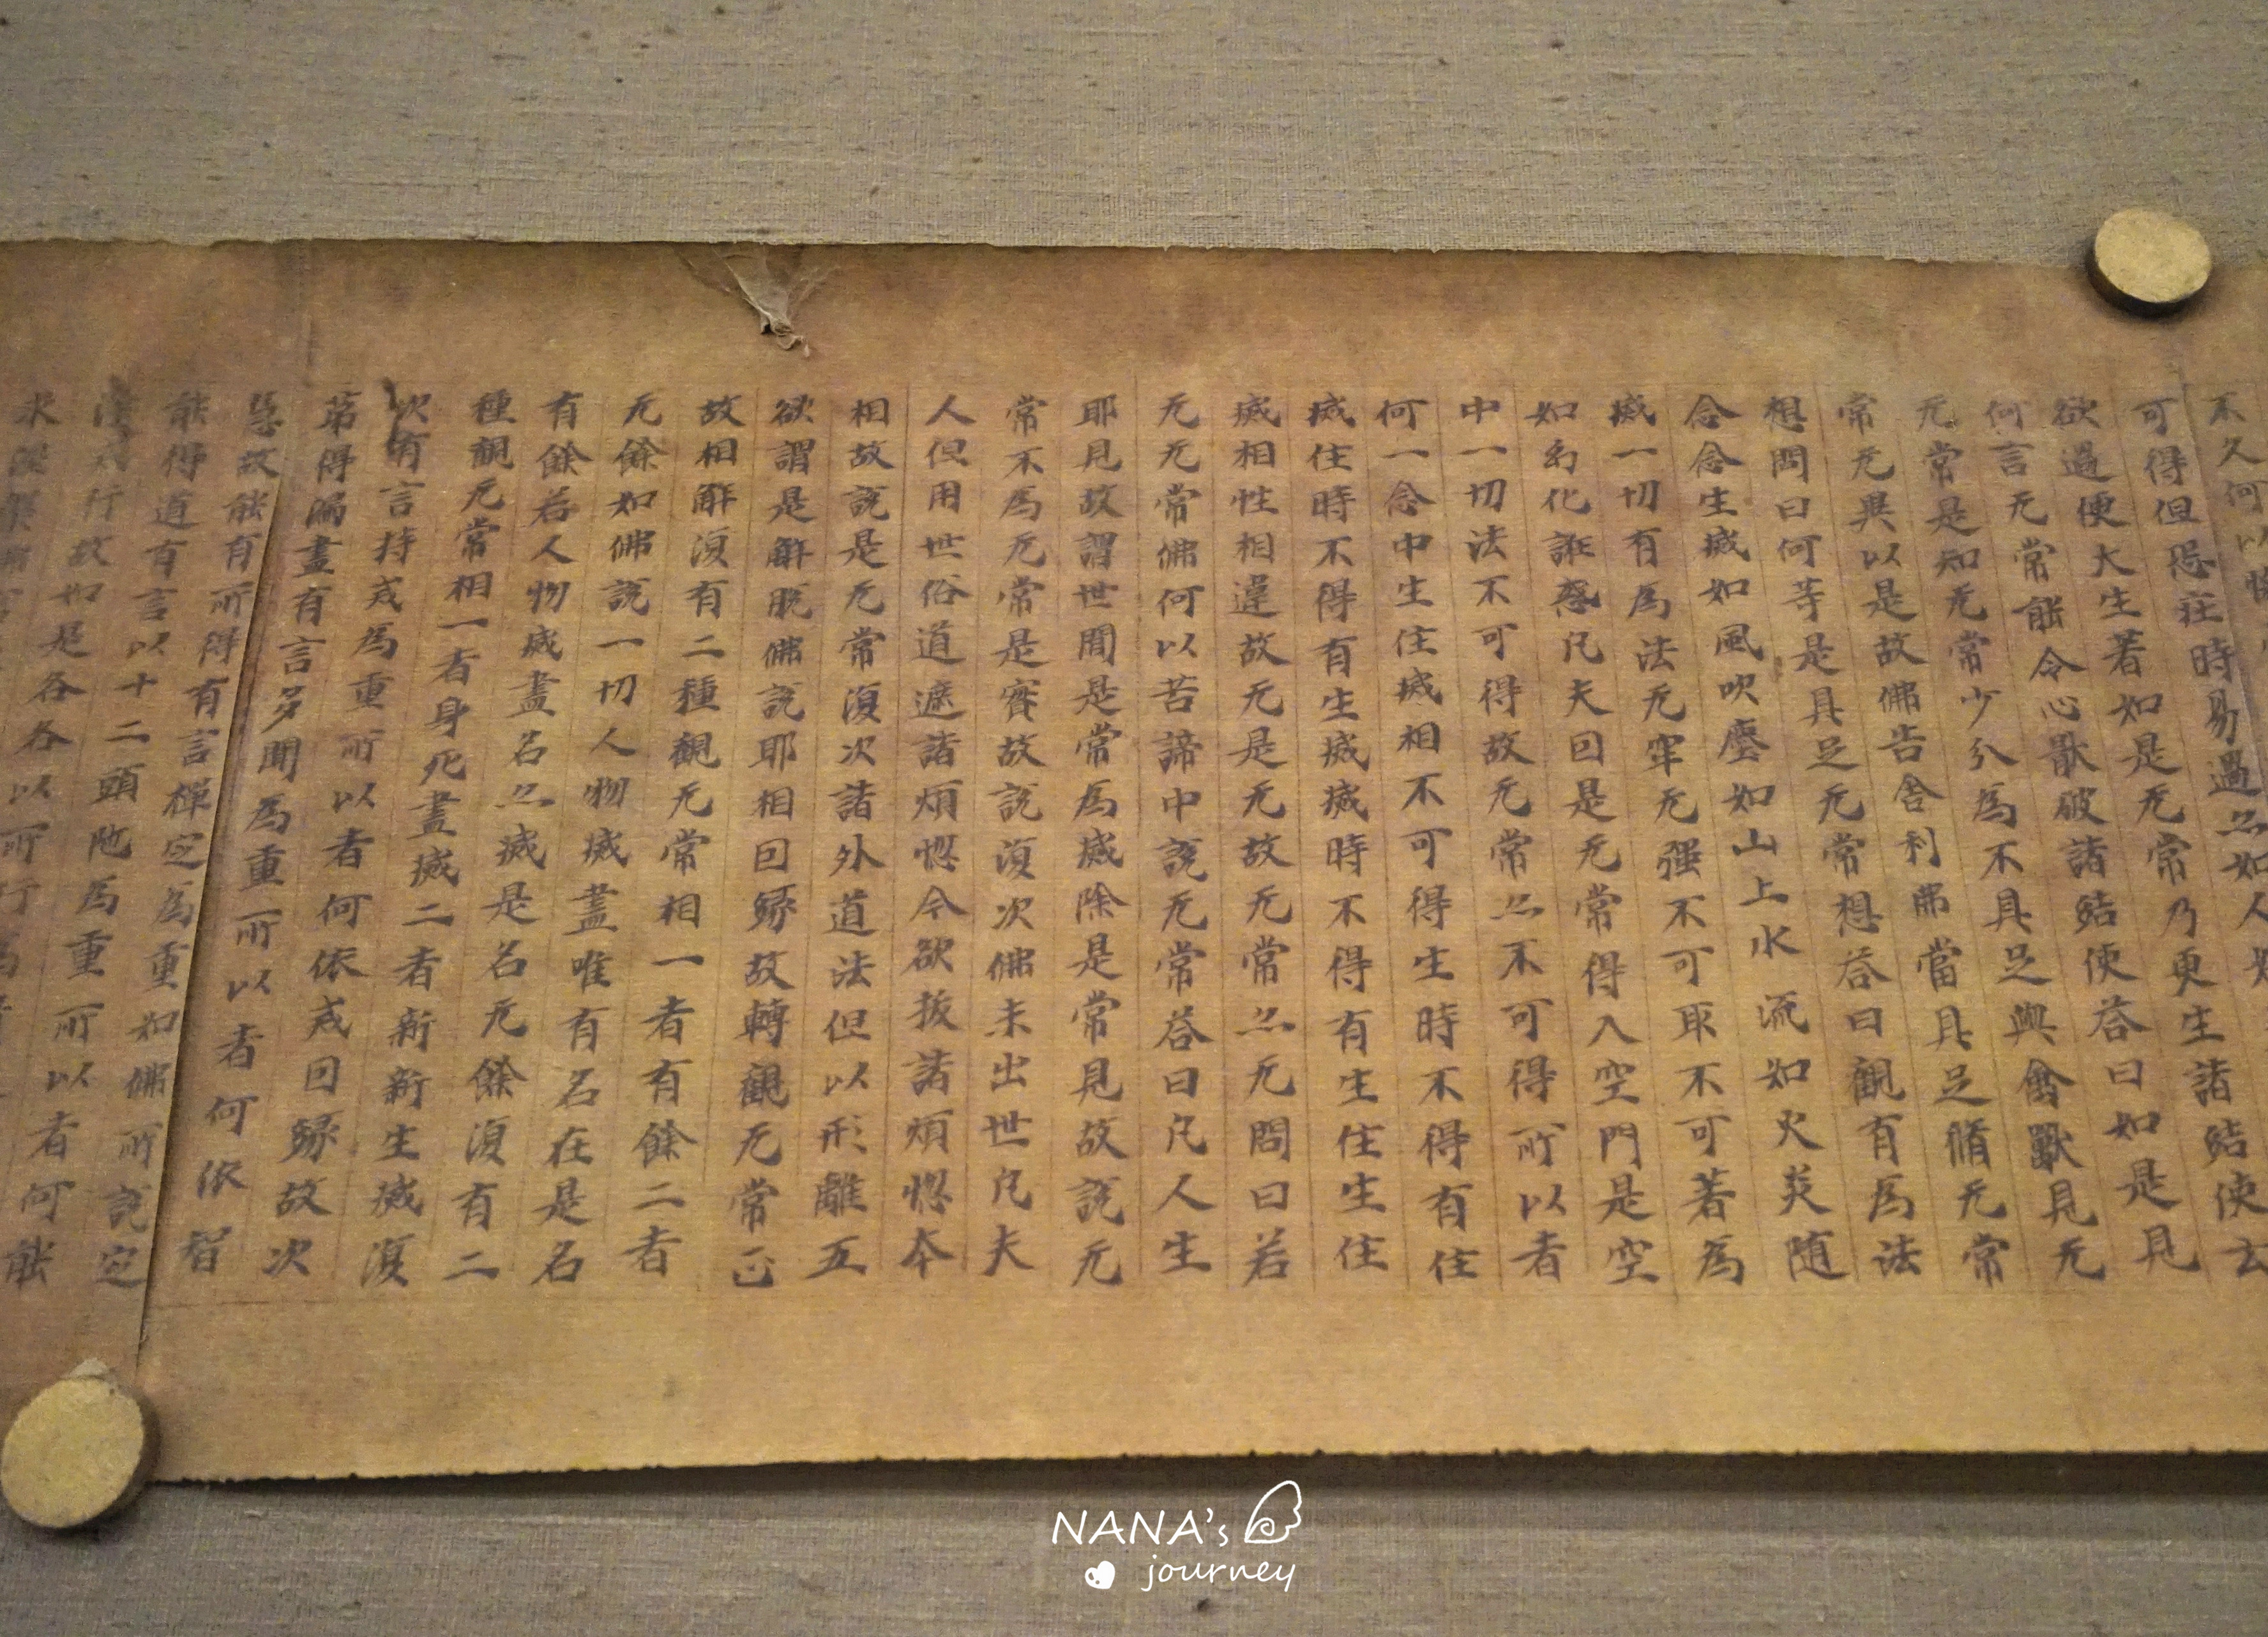 不久何以
可得但恐在時易過亦如人
欲過便大生著如是无常乃更生諸結使去
何言无常能令心猒破諸結使荅曰如是見
无常是知无常少分為不具足與會獸見无
常无異以是故佛告舍利弗當具足脩无常
想問曰何等是具足无常想荅曰觀有為法
念念生滅如風吹塵如山上水流如火炎隨
滅一切有為法无牢无强不可取不可著為
如幻化誑惑凡夫因是无常得入空門是空
中一切法不可得故无常亦不可得所以者
何一念中生住滅相不可得生時不得有住
滅住時不得有生滅滅時不得有生住生住
滅相性相違故无是无故无常亦无問曰若
无无常佛何以苦諦中說无常荅曰凡人生
耶見故謂世間是常為滅除是常見故說无
常不為无常是實故說復次佛未出世凡夫
人但用世俗道遮諸煩惱今欲拔諸煩惱本
相故說是无常復次諸外道法但以形離五
欲謂是解脫佛說耶相因緣故轉觀无常正
故相解復有二種觀无常相一者有餘二者
无餘如佛說一切人物滅盡唯有名在是名
有餘若人物滅盡名亦滅是名无餘復有二
種觀无常相一者身死盡滅二者新新生滅復
次有言持戒為重所以者何依戒因緣故次
第得漏盡有言多聞為重所以者何依智
慧故能有所得有言禪定為重如佛所說定
能得道有言以十二頭陁為重所以者何能
行故如是各各以所行為